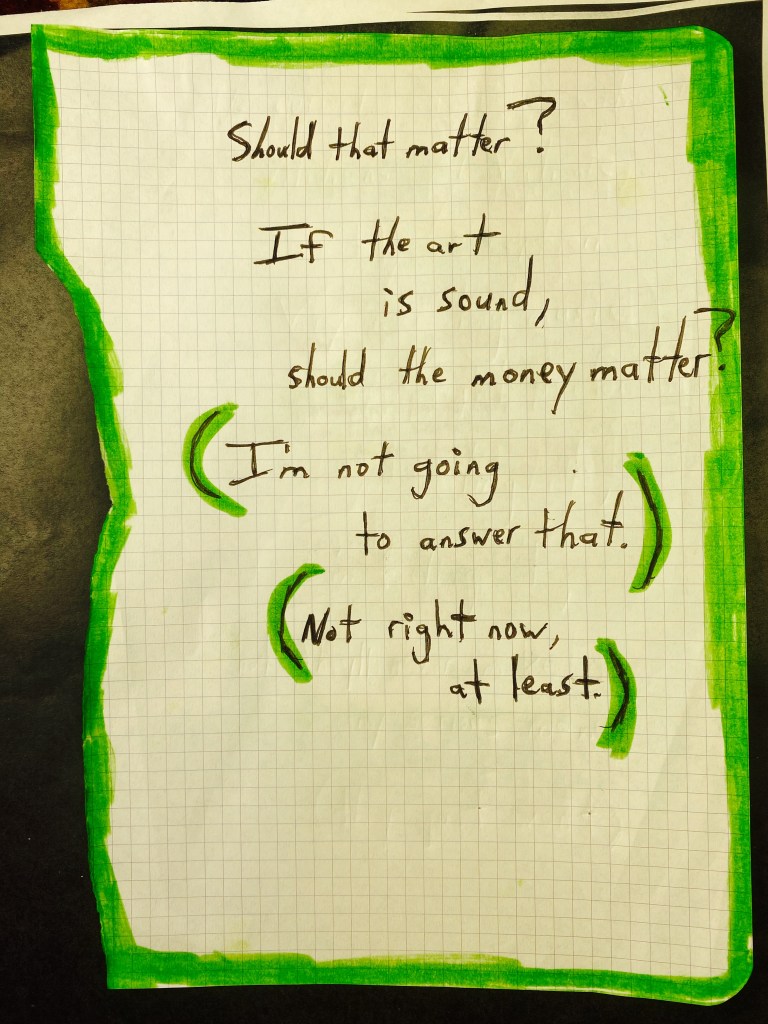 Should that matter?
If the art
is sound,
should the money matter?
(I'm not going
to answer that.)
(Not right now,
at least.)